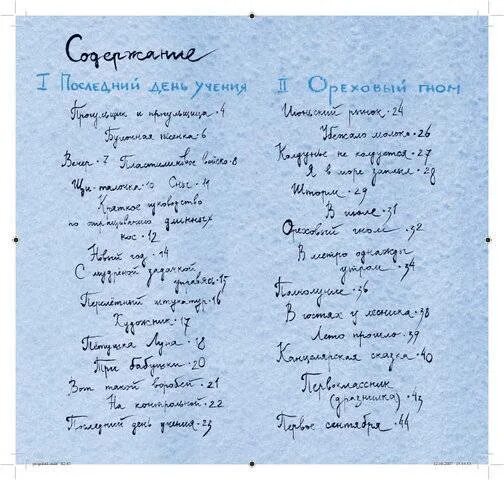 Содержание
I Последний день учения
Прогульщик и прогульщица • 4
Булочная песенка • 6
Вечер • 7 Пластилиновое войско • 8
Щи-талочка • 10 Сны • 11
Краткое руководство
по отращиванию длинных
кос • 12
Новый год • 14
С мудрёной задачкой
управясь • 15
Перелётный штукатур • 16
Художник • 17
Петушка Луна • 18
Три бабушки • 20
Вот такой воробей • 21
На контрольной • 22
Последний день учения • 23
II Ореховый гном
Июньский рынок • 24
Убежало молоко • 26
Колдунье не колдуется • 27
Я в море заплыл • 28
Шторм • 29
В июле • 31
Ореховый гном • 32
В метро однажды
утром • 34
Полнолуние • 36
В гостях у лесника • 38
Лето прошло • 39
Канцелярская сказка • 40
Первоклассник
(дразнилка) • 43
Первое сентября • 44